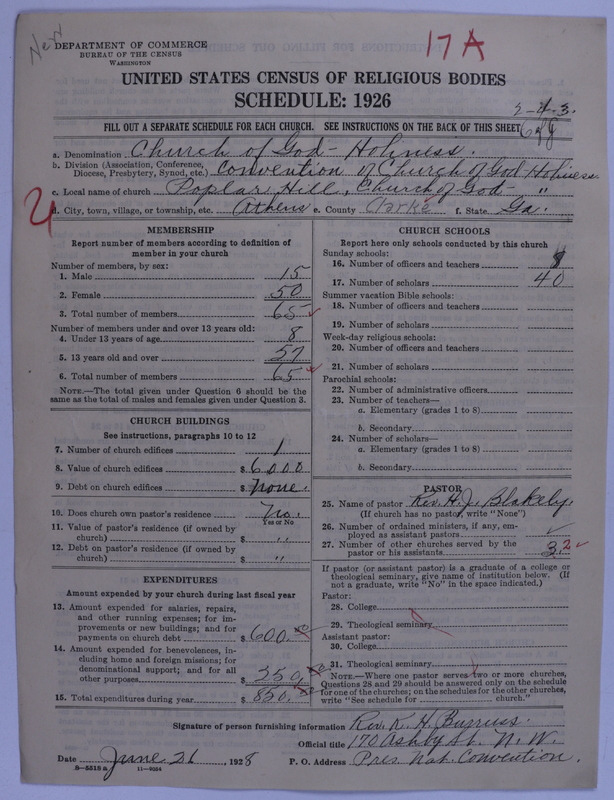 Nev
17A
DEPARTMENT OF COMMERCE
BUREAU OF THE CENSUS
WASHINGTON
UNITED STATES CENSUS OF RELIGIOUS BODIES
SCHEDULE: 1926
2-4-3.
FILL OUT A SEPARATE SCHEDULE FOR EACH CHURCH. SEE INSTRUCTIONS ON THE BACK OF THIS SHEET
a. Denomination Church of God - Holiness.
b. Division (Association, Conference, Diocese, Presbytery, Synod, etc.) Convention of Church of God Holiness.
c. Local name of church Poplar Hill, Church of God - "
d. City, town, village, or township, etc. Athens e. County Clarke f. State Ga.
MEMBERSHIP
Report number of members according to definition of
member in your church
Number of members, by sex:
1. Male 15
2. Female 50
3. Total number of members 65
Number of members under and over 13 years old:
4. Under 13 years of age 8
5. 13 years old and over 57
6. Total number of members 65
NOTE.—The total given under Question 6 should be
the same as the total of males and females given under Question 3.
CHURCH BUILDINGS
See instructions, paragraphs 10 to 12
7. Number of church edifices 1
8. Value of church edifices $ 6000
9. Debt on church edifices $ none.
10. Does church own pastor's residence? no.
Yes or No
11. Value of pastor's residence (if owned by
church) $ "
12. Debt on pastor's residence (if owned by
church) $ "
EXPENDITURES
Amount expended by your church during last fiscal year
13. Amount expended for salaries, repairs,
and other running expenses; for im-
provements or new buildings; and for
payments on church debt $ 600.
14. Amount expended for benevolences, in-
cluding home and foreign missions; for
denominational support; and for all
other purposes $ 250
15. Total expenditures during year $ 850.
CHURCH SCHOOLS
Report here only schools conducted by this church
Sunday schools:
16. Number of officers and teachers
17. Number of scholars 40
Summer vacation Bible schools:
18. Number of officers and teachers
19. Number of scholars
Week-day religious schools:
20. Number of officers and teachers
21. Number of scholars
Parochial schools:
22. Number of administrative officers
23. Number of teachers—
a. Elementary (grades 1 to 8)
b. Secondary
24. Number of scholars—
a. Elementary (grades 1 to 8)
b. Secondary
PASTOR
25. Name of pastor Rev. H. J. Blakely.
(If church has no pastor, write "None")
26. Number of ordained ministers, if any, em-
ployed as assistant pastors
27. Number of other churches served by the
pastor or his assistants 3 2
If pastor (or assistant pastor) is a graduate of a college or
theological seminary, give name of institution below. (If
not a graduate, write "No" in the space indicated.)
Pastor:
28. College
29. Theological seminary
Assistant pastor:
30. College
31. Theological seminary
NOTE.—Where one pastor serves two or more churches,
Questions 28 and 29 should be answered only on the schedule
for one of the churches; on the schedules for the other churches,
write "See schedule for church."
Signature of person furnishing information Rev. K. H. Burruss.
Official title 170 Ashby St. N. W.
Date June 26, 1928 P. O. Address Pres. Nat. Convention.
8-5518a 11-9024